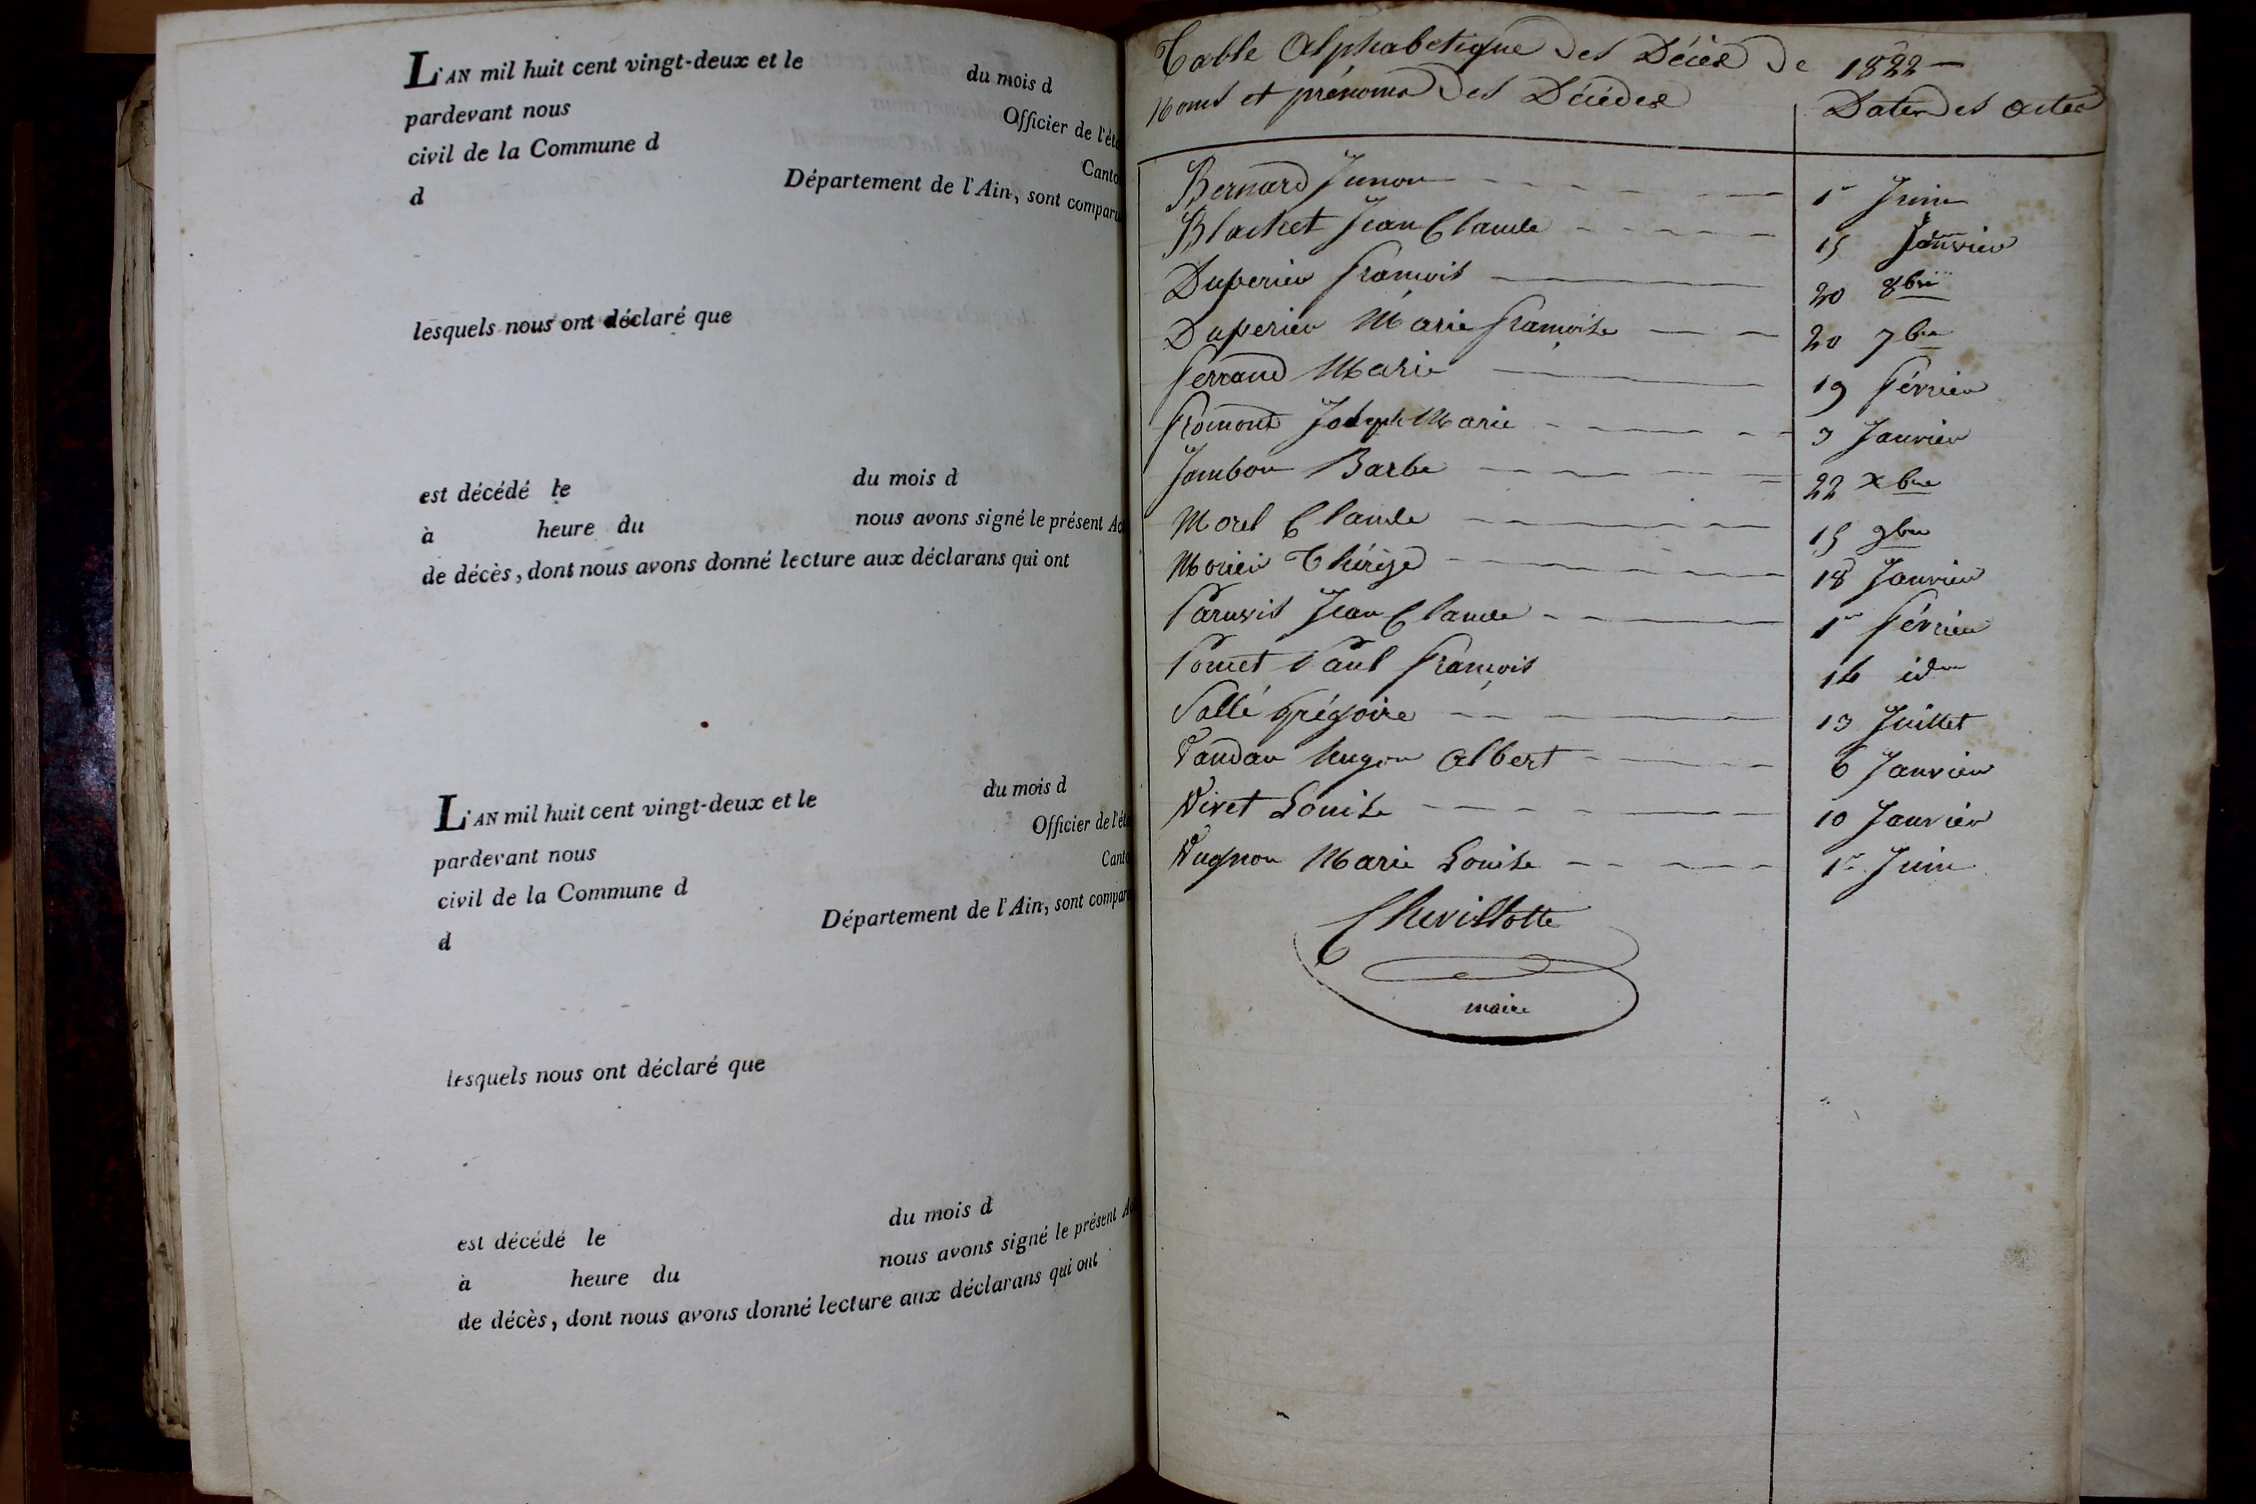 L'AN mil huit cent vingt-deux et le du mois d
pardevant nous Officier de l'éta
civil de la Commune d Canto
d Département de l'Ain, sont comparu
lesquels nous ont déclaré que
est décédé le du mois d
à heure du nous avons signé le présent Ac
de décès, dont nous avons donné lecture aux déclarans qui ont
L'AN mil huit cent vingt-deux et le du mois d
pardevant nous Officier de l'éta
civil de la Commune d Canto
d Département de l'Ain, sont compar
lesquels nous ont déclaré que
est décédé le du mois d
à heure du nous avons signé le présent Ac
de décès, dont nous avons donné lecture aux déclarans qui ont
Table Alphabetique des Décès de 1822
Noms et prénoms des Décédés Dates des actes
Bernard 1er Juin
Blachet Jean Claude 15 Janvier
Duperier François 20 8bre
Duperier Marie Françoise 20 7bre
Ferrand Marie 19 Février
Fromont Joseph Marie 3 Janvier
Jambon Barbe 22 xbre
Morel Claude 15 9bre
Morier Thérèse 18 Janvier
Jean Claude 1er Février
Pomet Paul François 16 idem
Sallé Grégoire 13 Juillet
Vandau hugon Albert 6 Janvier
Viret Louise 10 Janvier
Vugnon Marie Louise 1er Juin
Chevillotte
maire